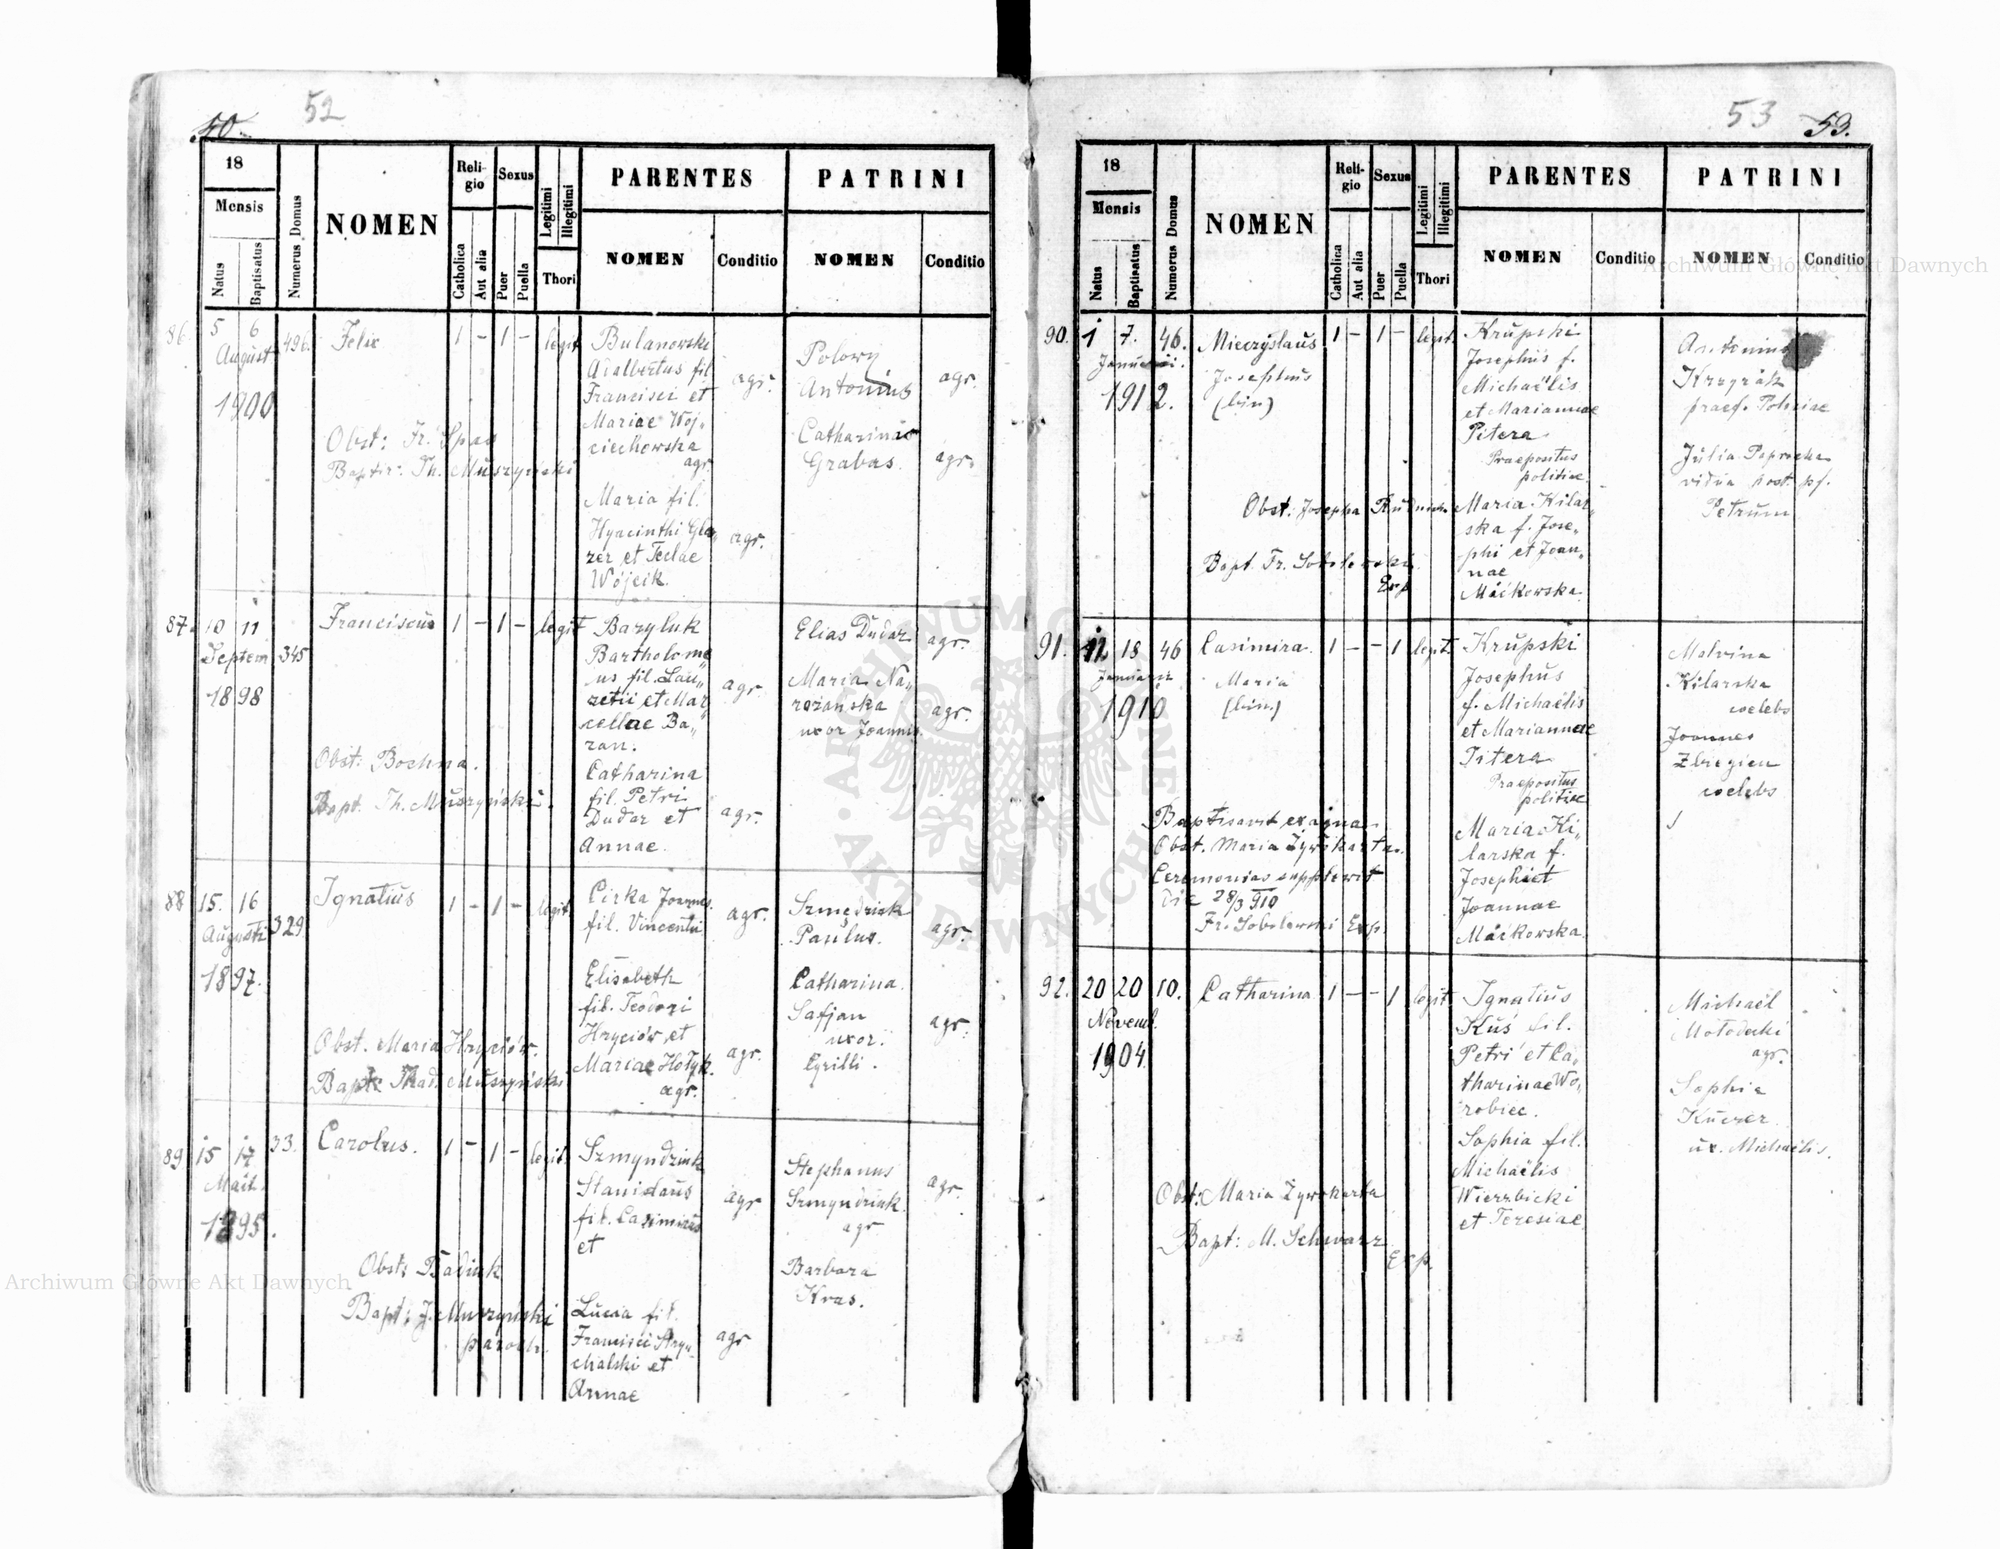 52
50.
18
Mensis
Natus
Baptisatus
Numerus Domus
NOMEN
Religio
Catholica
Aut alia
Sexus
Puer
Puella
Legitimi
Illegitimi
Thori
PARENTES
NOMEN
Conditio
PATRINI
NOMEN
Conditio
86. 5 6 496. Felix 1 - 1 - legit
August
1900
Obst: Fr. Spas
Baptis: Th. Muszyński
Bulanowski
Adalbertus fil
Francisci et
Mariae Woj„
ciechowska
agr.
Maria fil.
Hyacinthi Gla„
zer et Teclae
Wójcik.
agr.
agr.
Polowy
Antonius
agr.
Catharina
Grabas.
agr.
87. 10 11 345 Franciscus 1 - 1 - legit
Septem
1898
Obst: Bochna.
Bapt. Th. Muszyński.
Baryluk
Bartholome„
us fil. Lau„
zetii et Mar„
cellae Ba„
ran.
agr.
Catharina
fil. Petri
Dudar et
Annae.
agr.
Elias Dudar
agr.
Maria Na„
rożanska
uxor Joannis.
agr.
88 15. 16 329 Ignatius 1 - 1 - legit
Augusti
1897.
Obst. Maria Hryciów.
Bapt: Thad. Muszyński
Cirka Joannes
fil. Vincentii
agr.
Elisabeth
fil. Teodori
Hryciów et
Mariae Hołyk.
agr.
agr.
Szmędziuk
Paulus.
agr.
Catharina
Safjan
uxor.
Cyrilli.
agr.
89 15 17 33. Carolus. 1 - 1 - legit.
Maii.
1895.
Obst: Badiuk
Bapt: J. Muszyński
paroch.
Szmyndziuk
Stanislaus
fil. Casimirus
et
agr
Lucia fil.
Francisci Stry„
chalski et
Annae
agr
Stephanus
Szmyndziuk.
agr
agr.
Barbara
Kras.
53 53.
18
Mensis
Natus
Baptisatus
Numerus Domus
NOMEN
Religio
Catholica
Aut alia
Sexus
Puer
Puella
Legitimi
Illegitimi
Thori
PARENTES
NOMEN
Conditio
PATRINI
NOMEN
Conditio
90. 1 7. 46. Mieczyslaus 1 - 1 - legit.
Januarii.
1912.
Josephus
(bin)
Obst: Josepha Rudnicka
Bapt. Fr. Sobolewski
Exp
Krupski
Josephus f.
Michaëlis
et Mariannae
Pitera
Praepositus
politiae.
Maria Kilar„
ska f. Jose„
phi et Joan„
nae
Maćkowska.
Antonius
Krzyżak
praef. Policiae
Julia Paprocka
vidua post. pf.
Petrum
91. 12 18 46 Casimira. 1 - - 1 legit.
Januarii
1910
Maria
(bin.)
Baptisavit ex aqua
Obst. Maria Żywokarta.
Ceremonias supplevit
die 28/3 910
Fr. Sobolewski Exp.
Krupski
Josephus
f. Michaëlis
et Mariannae
Pitera
Praepositus
politiae
Maria Ki„
larska f.
Josephi et
Joannae
Maćkowska.
Malvina
Kilarska
coelebs
Joannes
Zbiegien
coelebs
92. 20 20 10. Catharina 1 - - 1 legit.
Novemb.
1904
Obst: Maria Żywokarta
Bapt: M. Schwarz
Exp.
Ignatius
Kuś fil.
Petri et Ca„
tharinae Wo„
robiec.
Sophia fil.
Michaëlis
Wierzbicki
et Teresiae
Michaël
Mołodecki
agr.
Sophia
Kuczer
ux. Michaëlis.
Archiwum Główne Akt Dawnych
Archiwum Główne Akt Dawnych
ARCHIWUM GŁÓWNE AKT DAWNYCH